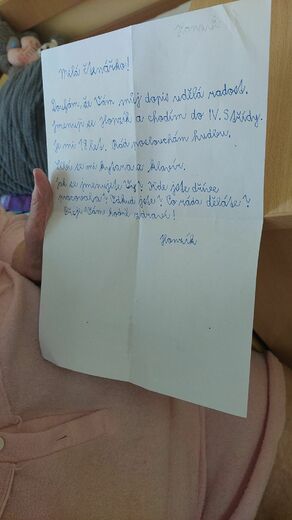 Honzík
Milá čtenářko!
Doufám, že Vám můj dopis udělá radost.
Jmenuji se Honzík a chodím do IV. S třídy.
Je mi 18 let. Rád poslouchám hudbu.
Líbí se mi kytara a klavír.
Jak se jmenujete Vy? Kde jste dříve
pracovala? Odkud jste? Co ráda děláte?
Přeji Vám hodně zdraví!
Honzík